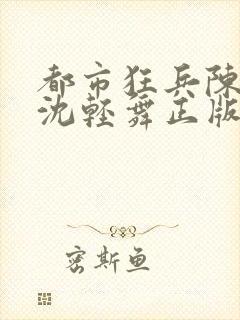 都市狂兵陳
沈輕舞正版
密斯鱼